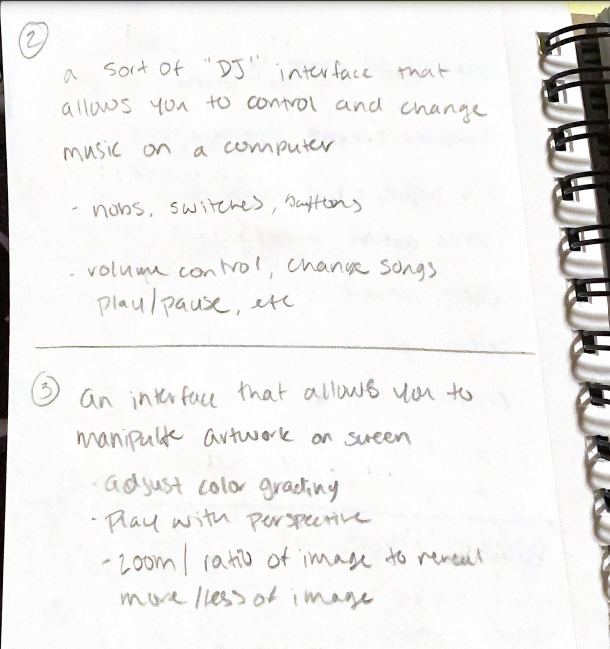 ②
a sort of "DJ" interface that
allows you to control and change
music on a computer
- nobs, switches, buttons
- volume control, change songs
play/pause, etc
③ an interface that allows you to
manipulte artwork on screen
- adjust color grading
- Play with perspective
- zoom/ ratio of image to reveal
more/less of image